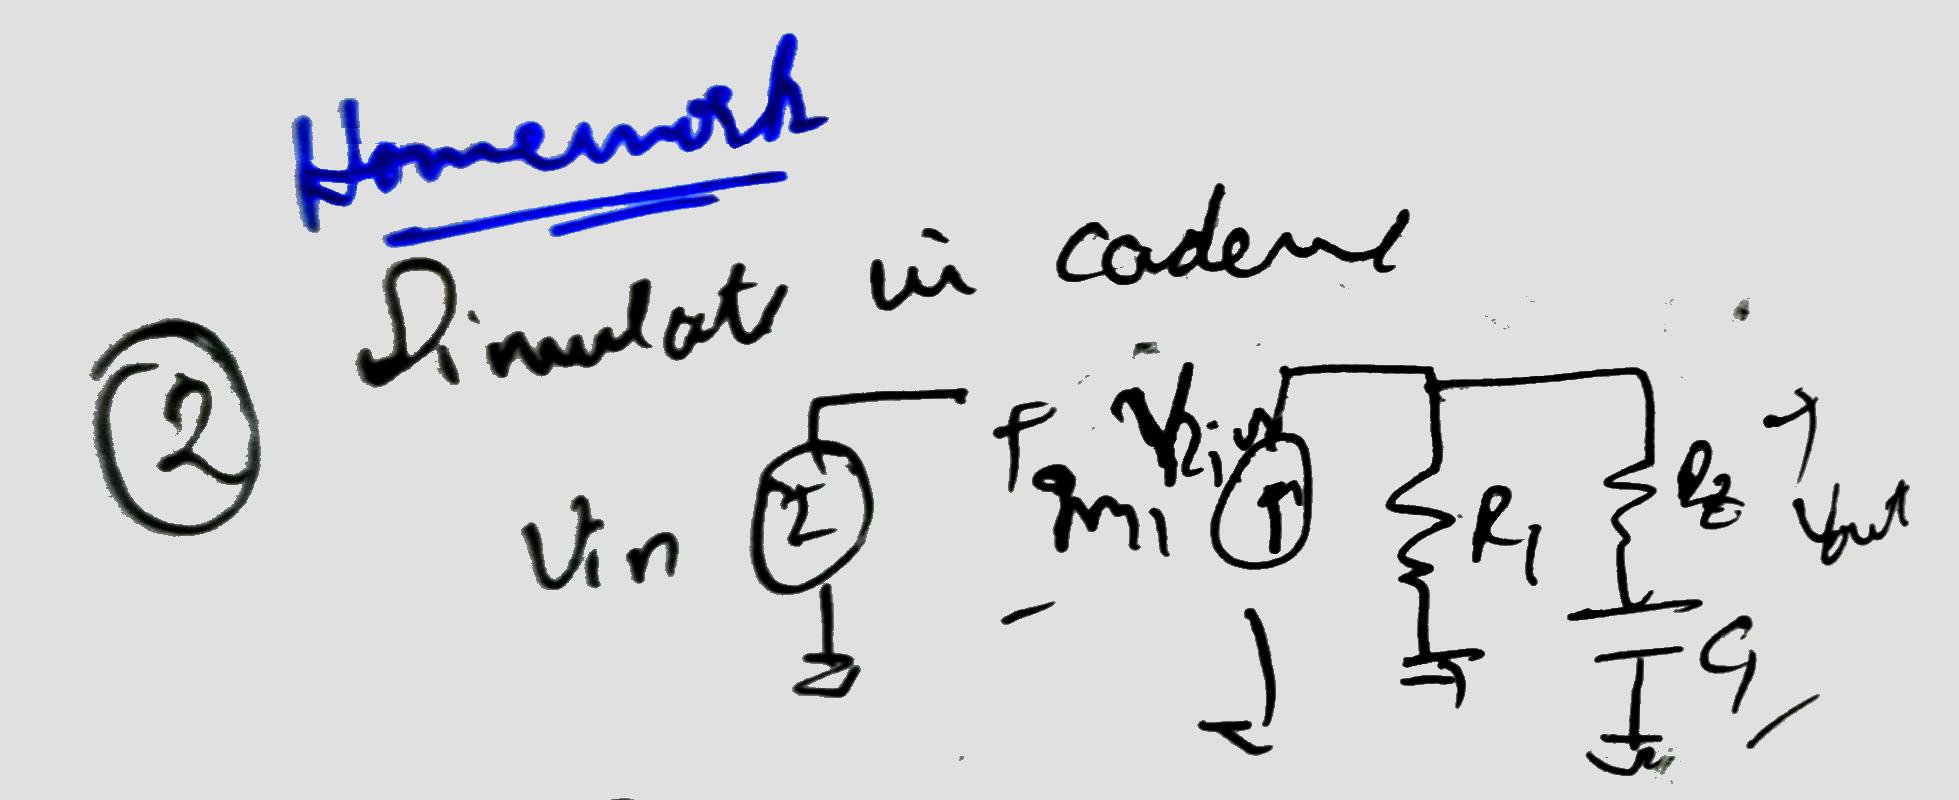 Homework
② Simulate in cadence
Vin
+
gm1 Vin
-
R1
Rz
C1
+
Vout
-